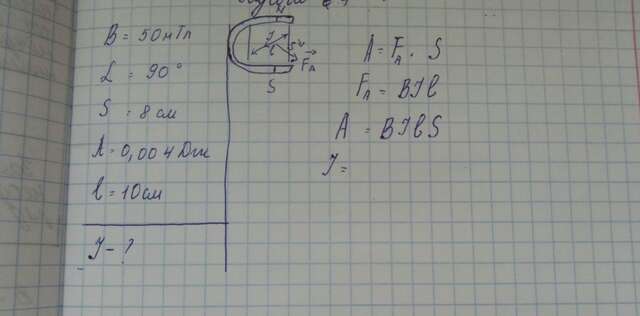 B = 50мТл
L = 90°
S = 8 см
A = 0,004 Дж
l = 10 см
J - ?
J
l
F_A
S
A = F_A · S
F_A = BJl
A = BJlS
J =